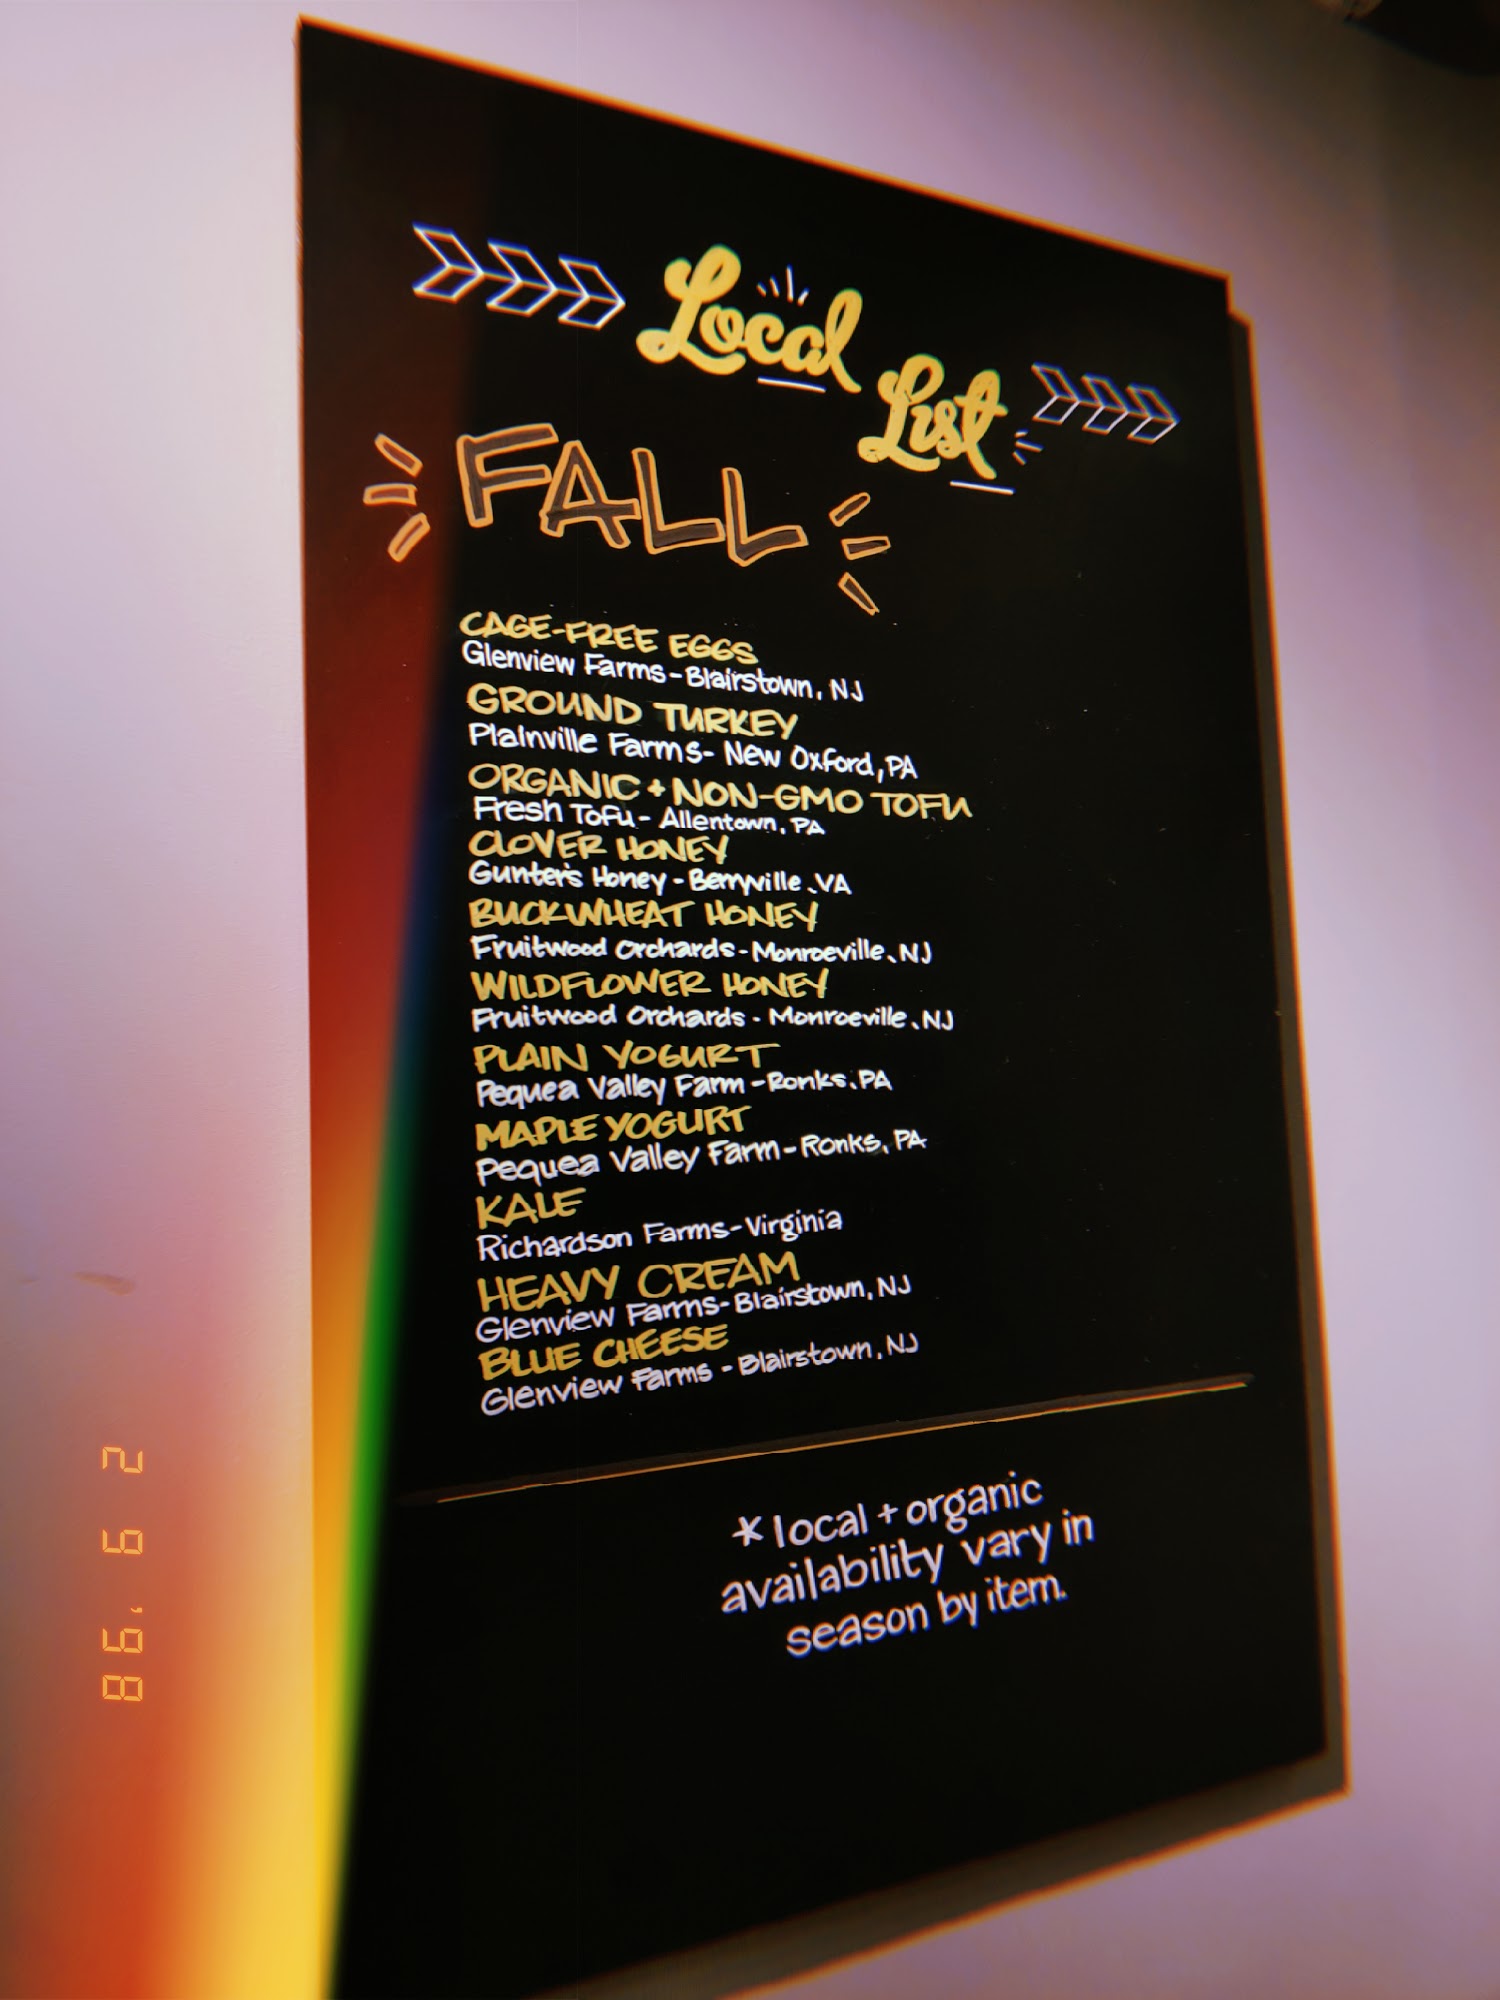 Local
List
FALL
CAGE-FREE EGGS
Glenview Farms-Blairstown, NJ
GROUND TURKEY
Plainville Farms- New Oxford, PA
ORGANIC + NON-GMO TOFU
Fresh Tofu - Allentown, PA
CLOVER HONEY
Gunter's Honey - Berryville, VA
BUCKWHEAT HONEY
Fruitwood Orchards-Monroeville, NJ
WILDFLOWER HONEY
Fruitwood Orchards - Monroeville, NJ
PLAIN YOGURT
Pequea Valley Farm -Ronks, PA
MAPLE YOGURT
Pequea Valley Farm-Ronks, PA
KALE
Richardson Farms-Virginia
HEAVY CREAM
Glenview Farms-Blairstown, NJ
BLUE CHEESE
Glenview Farms - Blairstown, NJ
*local + organic
availability vary in
season by item.
'98 6 2